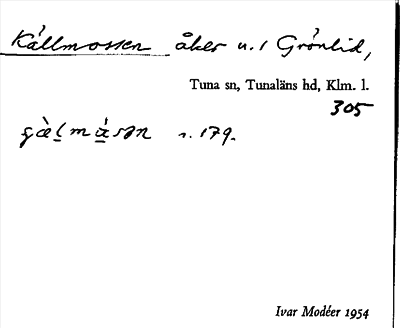 Källmossen åker u. 1 Grönlid,
Tuna sn, Tunaläns hd, Klm. l.
305
gæ̀lmåsən s. 179.
Ivar Modéer 1954